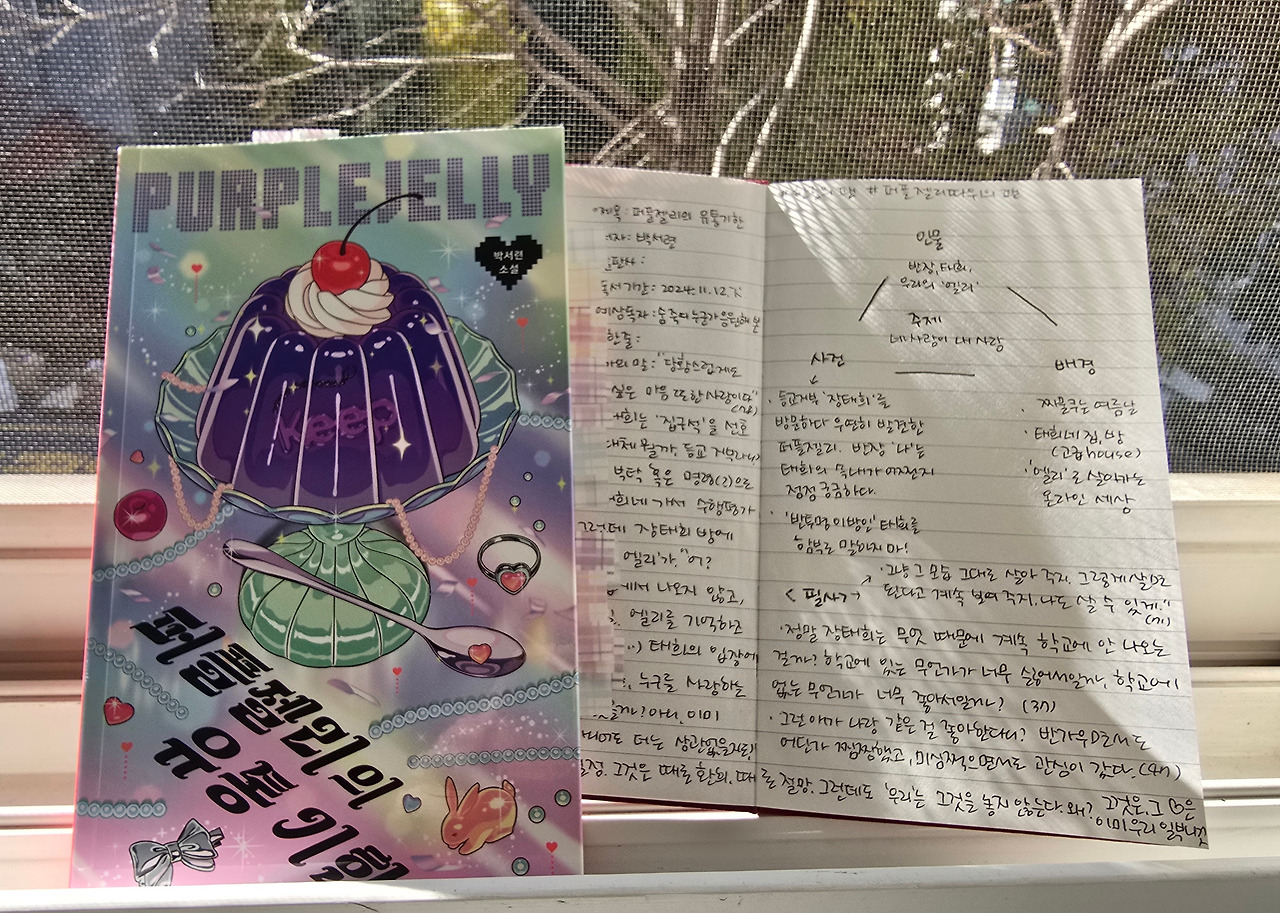 PURPLEJELLY
박서련
소설
keep
퍼플젤리의
유통기한
제목: 퍼플젤리의 유통기한
자: 박서련
판사:
독서기간: 2024.11.12.
예상독자:
한줄:
의 말: "당황스럽게도
싶은 마음 또한 사랑이다"
희는 '집구석'을 선호
대체 뭘까, 등교 거부라니
부탁 혹은 명령(?)으로
희네 가서 수행평가
그런데 장태희 방에
엘리'가. "어?
에서 나오지 않고,
엘리를 기억하조
태희의 입장에
누구를 사랑하는
을까? 아니, 이미
더는 상관없을지도
#퍼플젤리따위의 맵
인물
반장, 태희,
우리의 '엘리'
주제
네 사랑이 내 사랑
사건
등교거부 '장태희'를
방문하다 우연히 발견한
퍼플젤리. 반장 '나'는
태희의 속내가 어쩐지
점점 궁금하다.
'반투명 이방인' 태희를
함부로 말하지 마!
배경
찌물쿠는 여름날
태희네 집, 방
(고급 house)
'엘리'로 살아가는
온라인 세상
"그냥 그 모습 그대로 살아 주지. 그렇게 살아도
<필사> 된다고 계속 보여 주지. 나도 살 수 있게."
· 정말 장태희는 무엇 때문에 계속 학교에 안 나오는
걸까? 학교에 있는 무언가가 너무 싫어서일까, 학교에
없는 무언가가 너무 좋아서일까? (37)
· 그런 애가 나랑 같은 걸 좋아한다니? 반가우면서도
어딘가 찜찜했고, 미심쩍으면서도 관심이 갔다.
절정. 그것은 때로 환희, 때로 절망. 그런데도 우리는 그것을 놓지 않는다. 왜? 그것은, 그 ♡은
이미 우리 일부니까